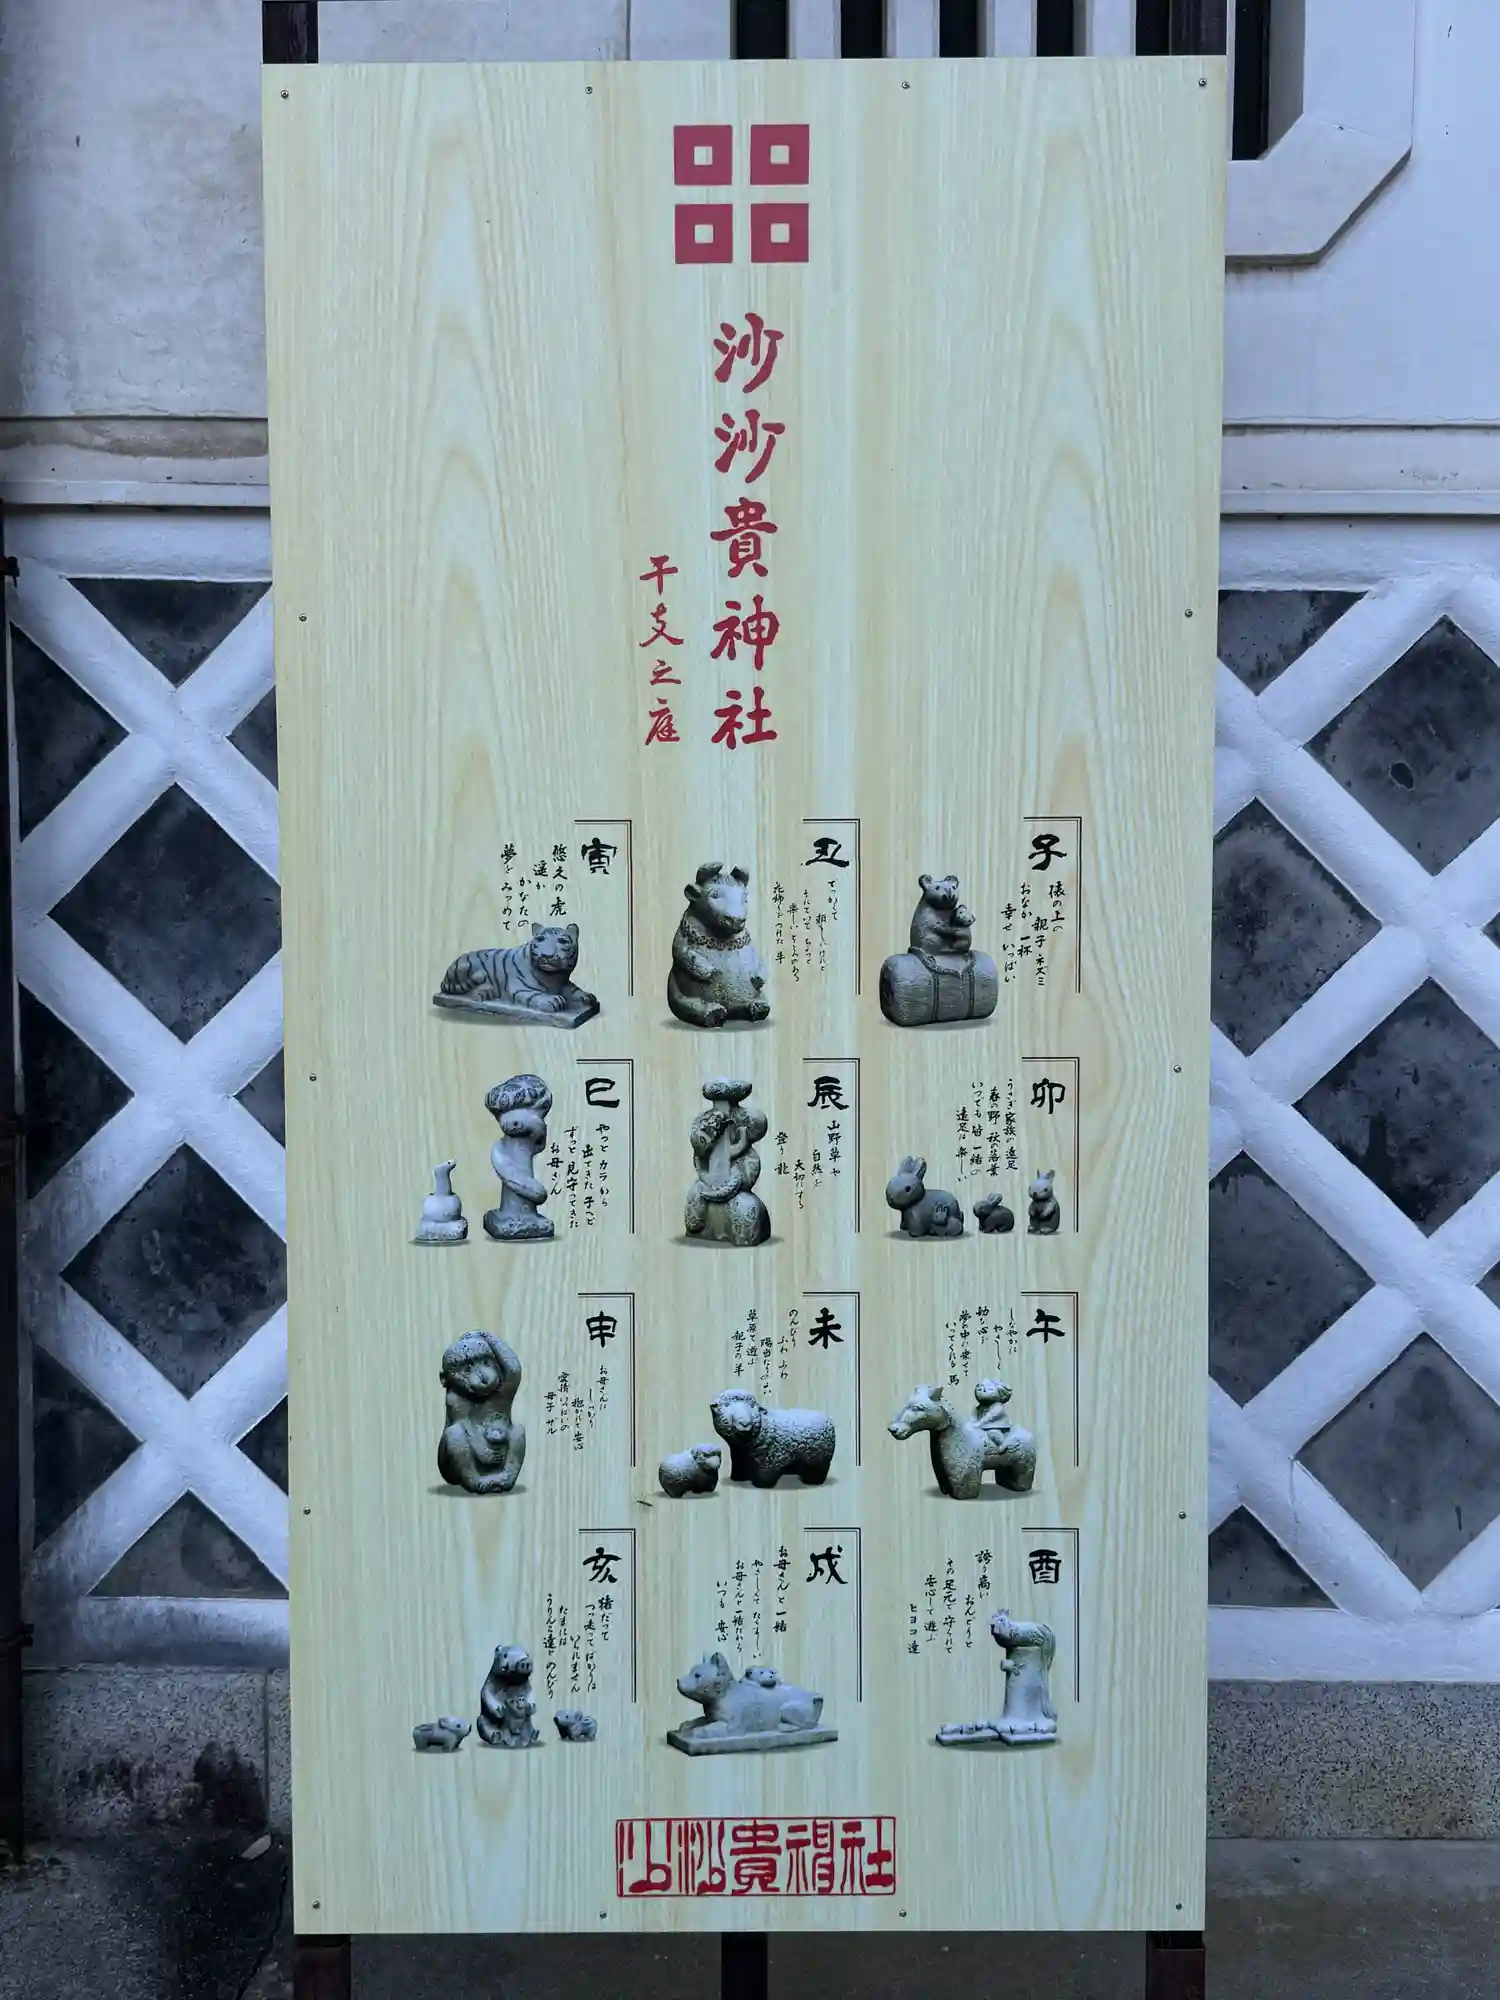 沙沙貴神社
干支之庭
子
俵の上の
親子ネズミ
おなか一杯
幸せいっぱい
丑
でっかくて
頼もしいけれど
それでいて ちょっと
楽しいところのある
花飾りをつけた牛
寅
悠久の虎
遥か
かなたの
夢をみつめて
卯
うさぎ家族の遠足
春の野 秋の落葉
いつでも皆一緒の
遠足は楽しい
辰
山野草や
自然を
大切にする
登り龍
巳
やっとカラから
出てきた子へど
ずっと見守ってきた
お母さん
午
しなやかに
やさしく
幼な心を
夢の中に乗せて
いってくれる馬
未
のんびり ふわふわ
陽当たりのよい
草原で遊ぶ
親子の羊
申
お母さんに
しっかり
抱かれて安心
愛情いっぱいの
母子ザル
酉
誇り高い
おんどりと
その足元で守られて
安心して遊ぶ
ヒヨコ達
戌
お母さんと一緒
やさしくてたくましい
お母さんと一緒だから
いつも安心
亥
猪だって
つっ走ってばかりは
いられません
たまには
うりんこ達とのんびり
沙沙貴神社